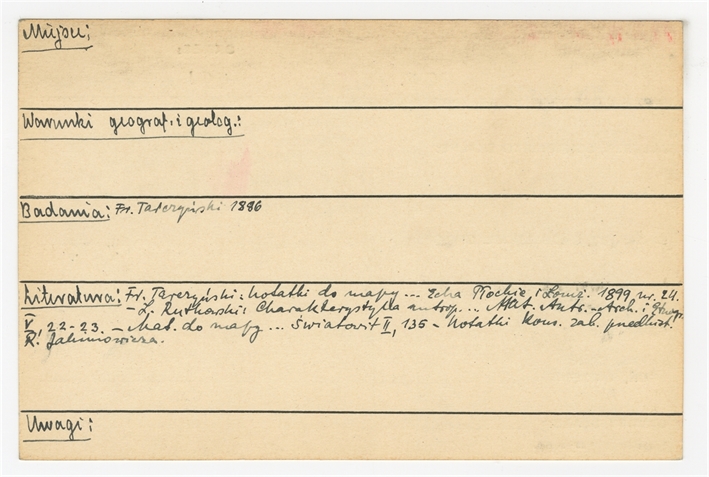 Miejsce:
Warunki geograf. i geolog.:
Badania: Fr. Tarczyński 1886
Literatura: Fr. Tarczyński: Notatki do mapy... Echa Płockie i Łomż. 1899, nr. 24.
- L. Rutkowski: Charakterystyka antrop... Mat. Antr.-Arch. i Etnogr.
V, 22-23. - Mat. do mapy... Światowit II, 135 - Notatki Kons. zab. przedhist.
R. Jakimowicza.
Uwagi: